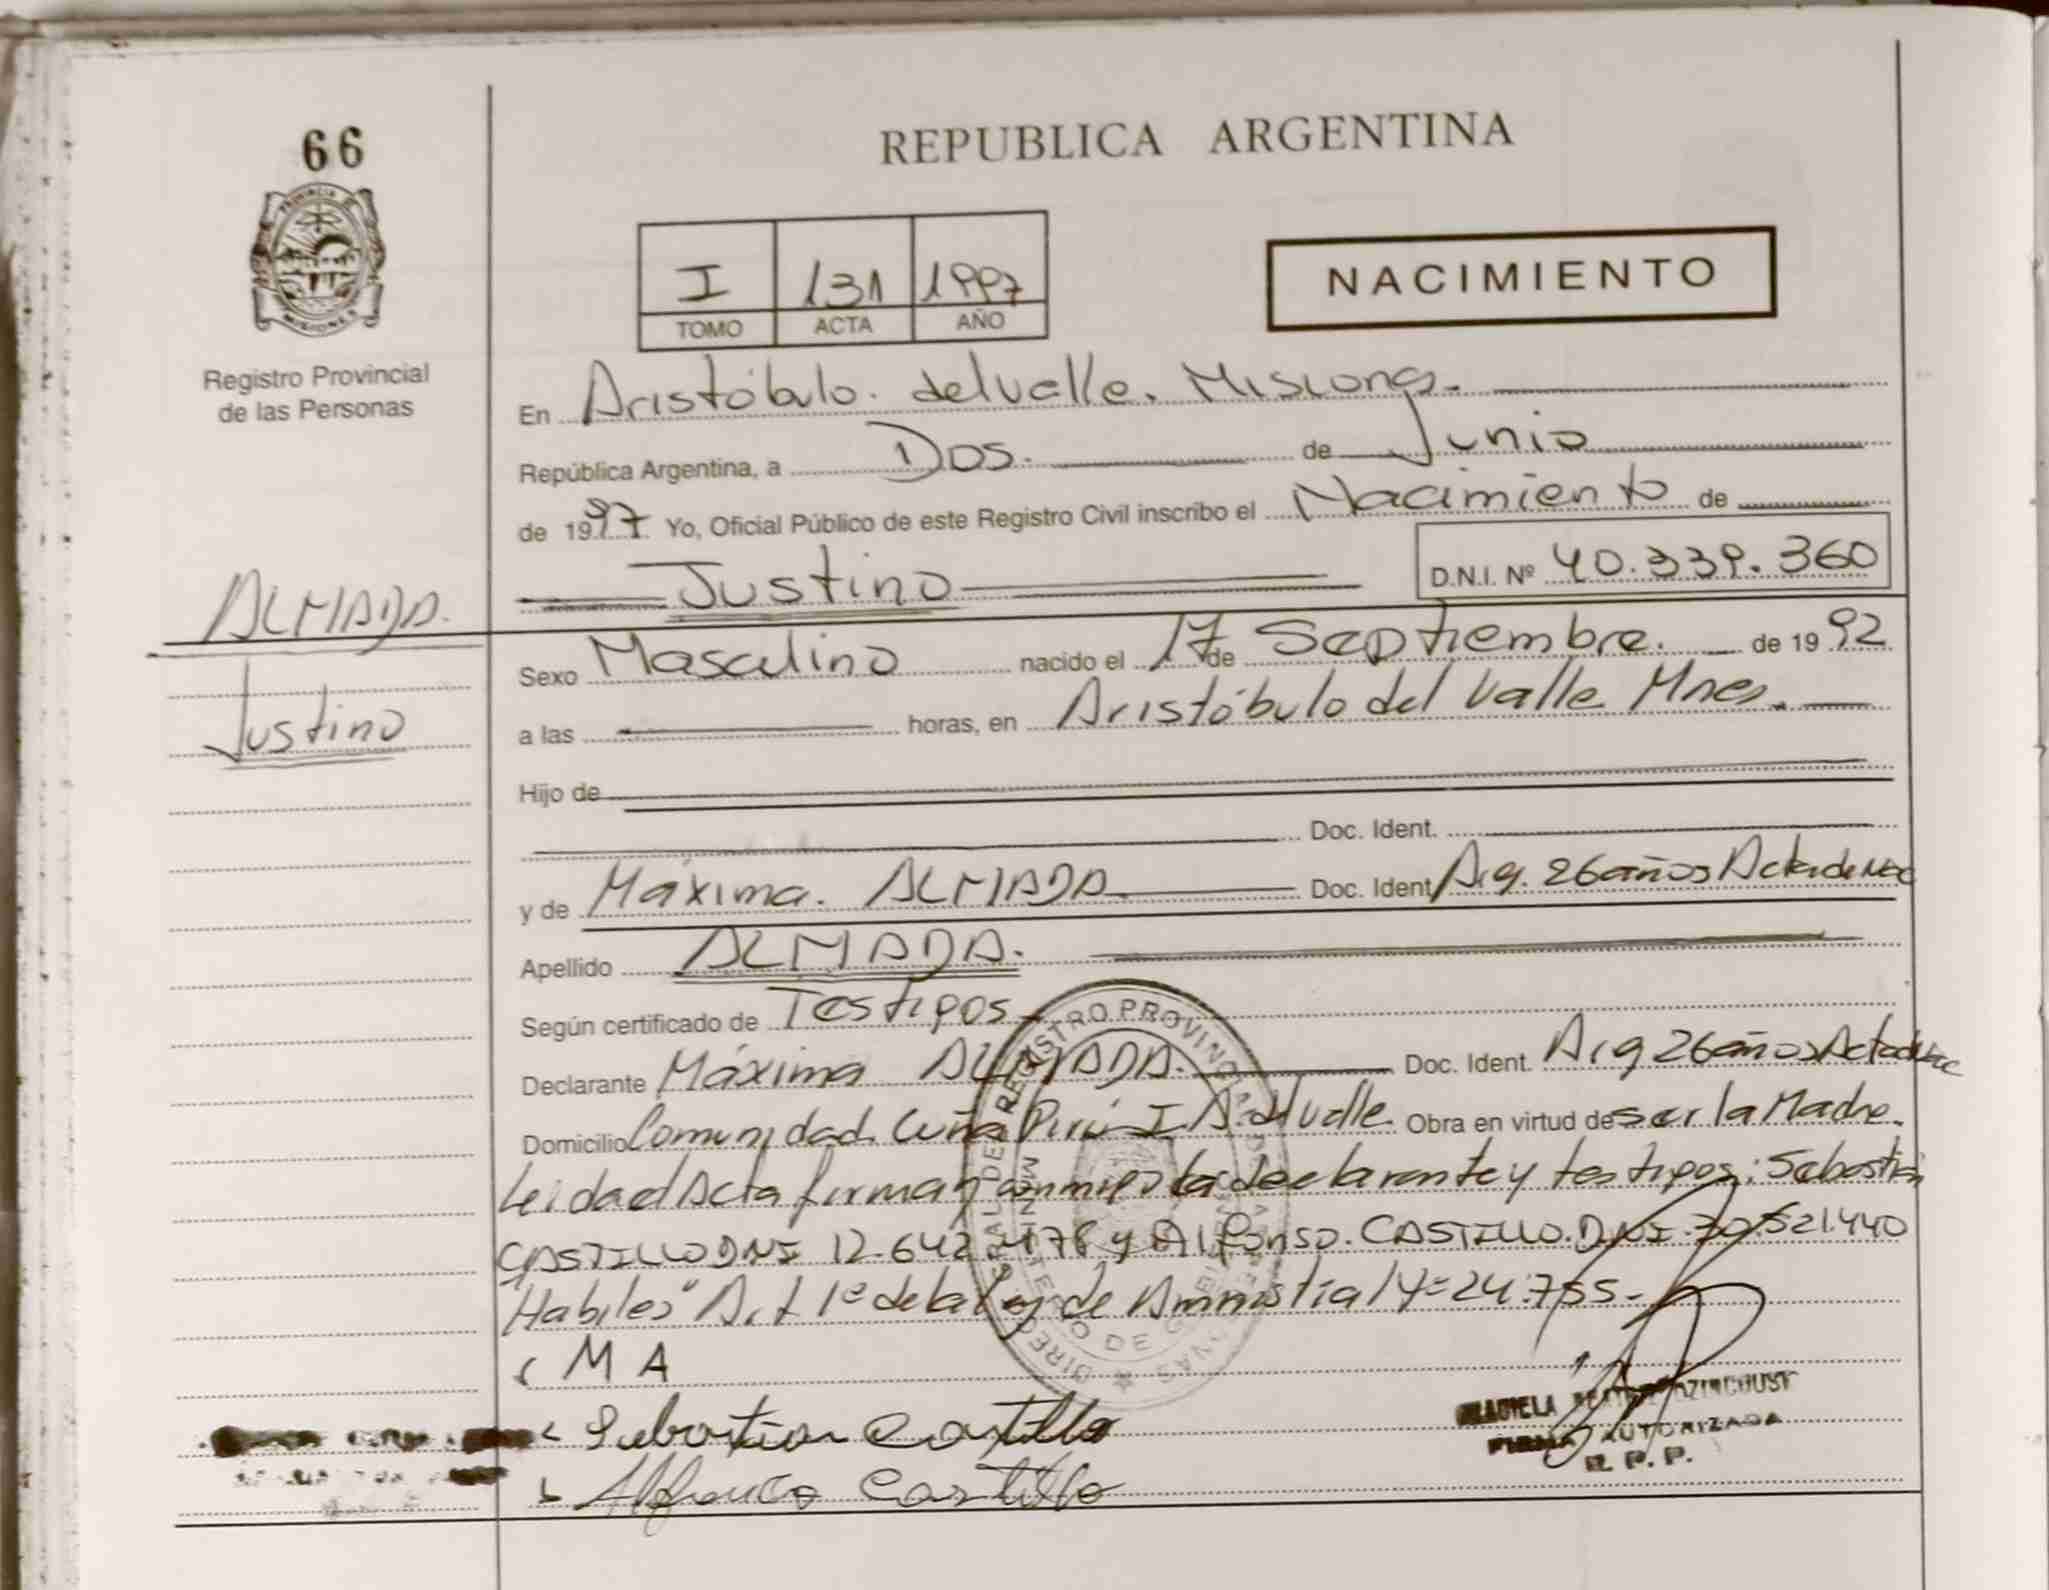 66
REPUBLICA ARGENTINA
PROVINCIA DE
MISIONES
I 131 1997
TOMO ACTA AÑO
NACIMIENTO
Registro Provincial
de las Personas
En Aristóbulo. del valle. Misiones.
República Argentina, a Dos. de Junio
de 1997 Yo, Oficial Público de este Registro Civil inscribo el Nacimiento de
Justino D.N.I. Nº 40.339.360
ALMADA.
Justino
Sexo Masculino nacido el 17 de Septiembre. de 1992
a las horas, en Aristóbulo del Valle Mnes.
Hijo de
Doc. Ident.
y de Máxima. ALMADA. Doc. Ident Arg. 26 años Acta de Nac
Apellido ALMADA.
Según certificado de Testigos
Declarante Máxima ALMADA. Doc. Ident. Arg 26 años Acta de Nac
Domicilio Comunidad Cuña Pirú I A. del Valle Obra en virtud de ser la Madre.
Leida el Acta firman conmigo la declarante y testigos: Sebastian
CASTILLO DNI 12.642.478 y Alfonso. CASTILLO. DNI. .521.440
"Habiles" Art 1º de la Ley de Amnistia Nº 24.755-
M A
Sebastian Castillo
Alfonso Castillo
FIRMA AUTORIZADA
R. P. P.